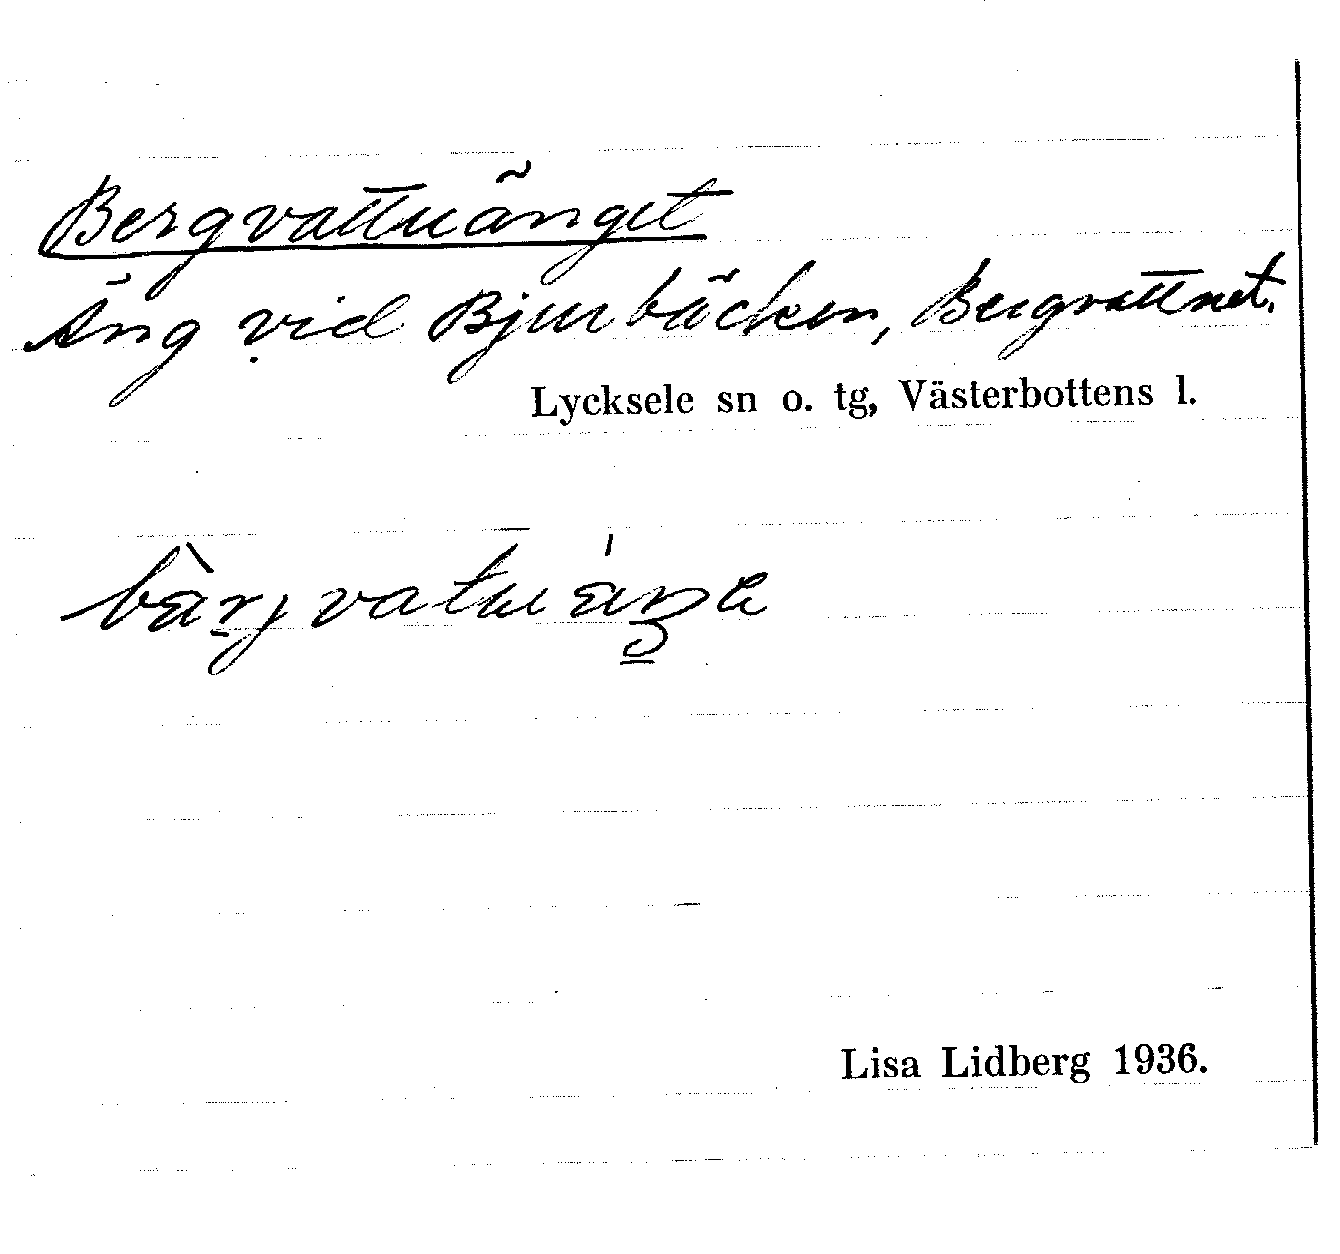 Bergvattuänget
Äng vid Bjurbäcken, Bergvattnet.
Lycksele sn o. tg, Västerbottens l.
Lisa Lidberg 1936.